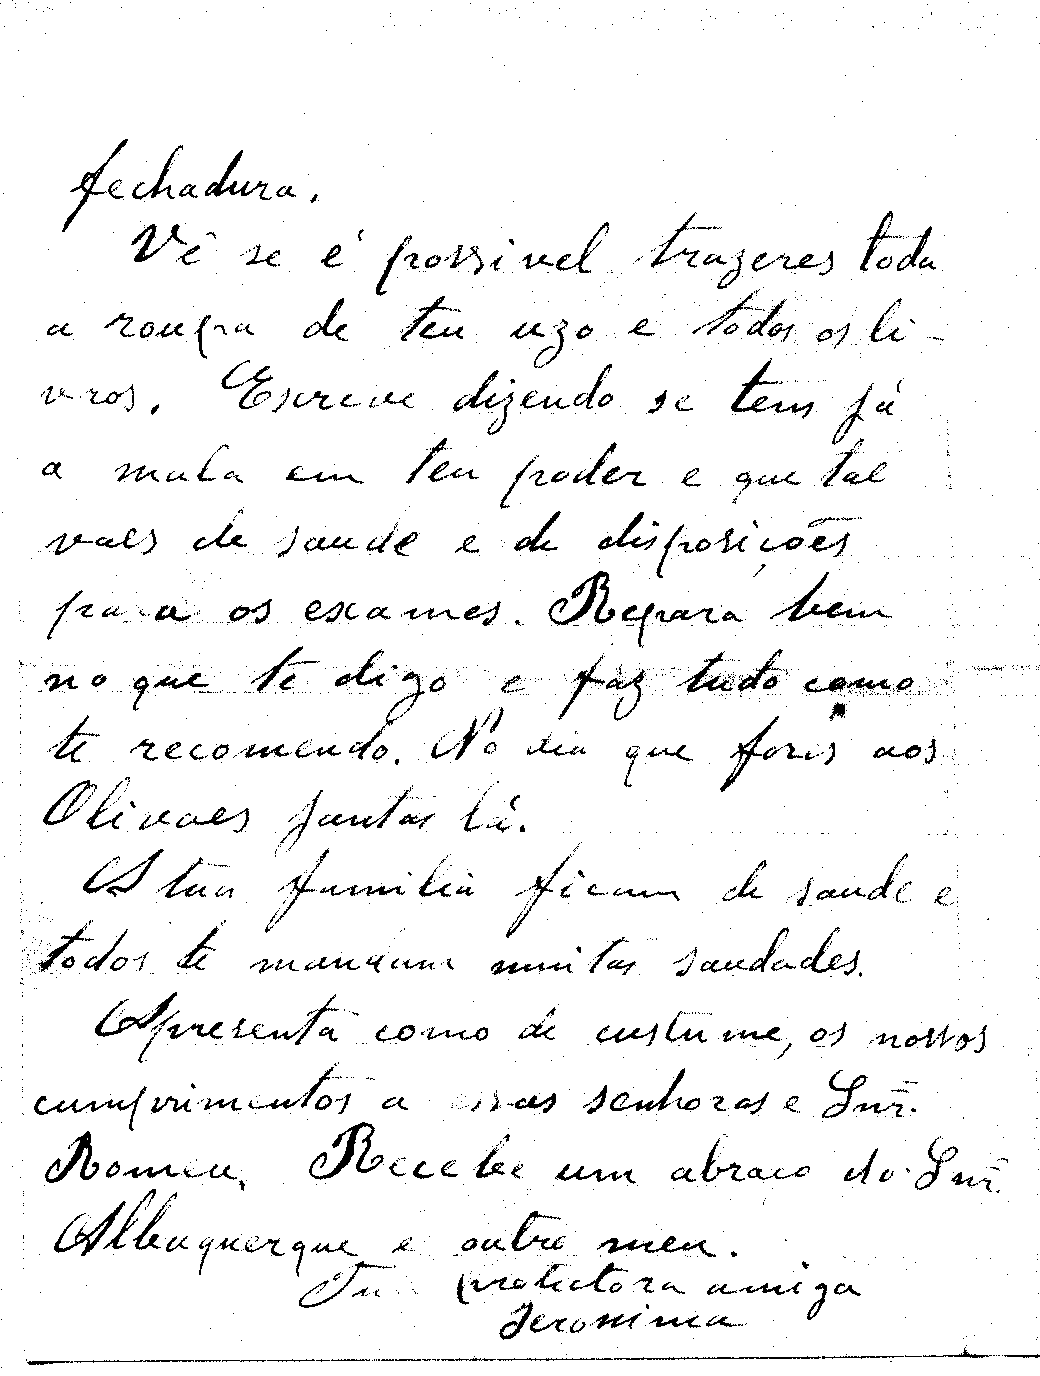 fechadura.
Vê se é possivel trazeres toda
a roupa de teu uzo e todos os li-
vros. Escreve dizendo se tens já
a mala em teu poder e que tal
vaes de saude e de disposições
para os exames. Repara bem
no que te digo e faz tudo como
te recomendo. No dia que fores aos
Olivaes jantas lá.
A tua familia ficam de saude e
todos te mandam muitas saudades.
Apresenta como de custume, os nossos
cumprimentos a essas senhoras e Snr.
Romeu. Recebe um abraço do Snr.
Albuquerque e outro meu.
Tua protectora amiga
Jeronima